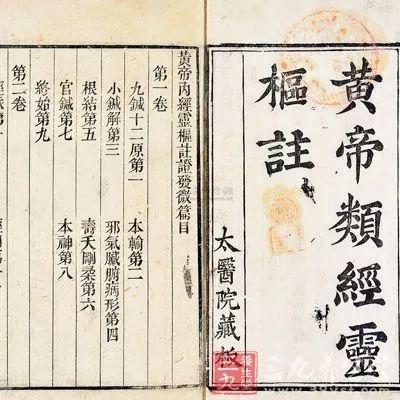 黃帝類經靈
樞註
太醫院藏板
黃帝內經靈樞註證發微篇目
第一卷
九鍼十二原第一
本輸第二
小鍼解第三
邪氣臟腑病形第四
根結第五
壽夭剛柔第六
官鍼第七
本神第八
終始第九
第二卷